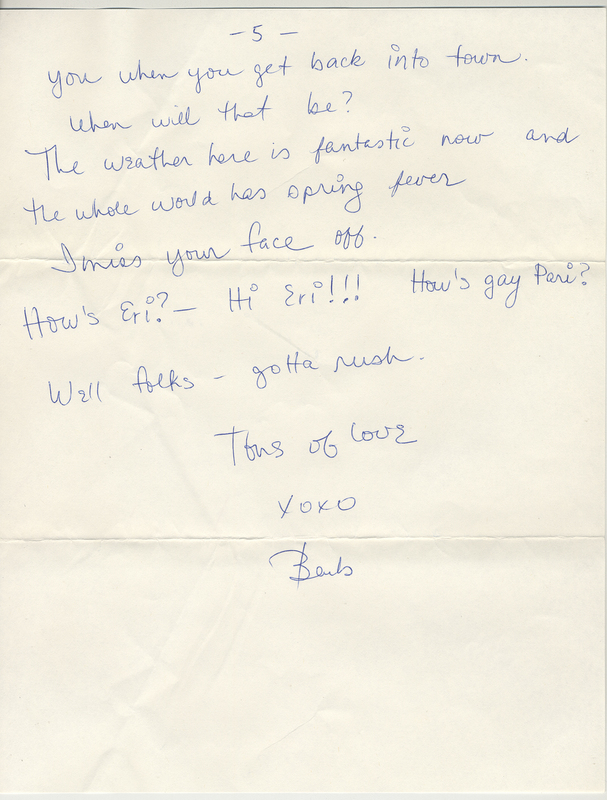 - 5 -
you when you get back into town.
When will that be?
The weather here is fantastic now and
the whole world has spring fever
I miss your face off.
How's Eri? - Hi Eri!!! How's gay Pari?
Well folks - gotta rush.
Tons of love
xoxo
Barb